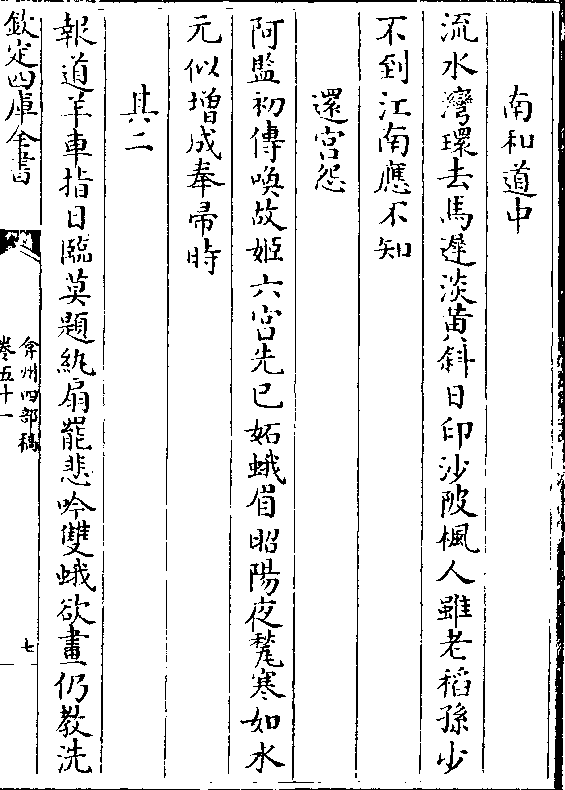 南和道中
流水灣環去馬遲淡黄斜日印沙陂楓人雖老稻孫少
不到江南應不知
還宫怨
阿監初傳喚故姬六宫先已妬蛾眉昭陽夜氊寒如水
元似增成奉帚時
其二
報道羊車指日臨莫題紈扇罷悲吟雙蛾欲畫仍教洗
欽定四庫全書
弇州四部稿
卷五十一
七